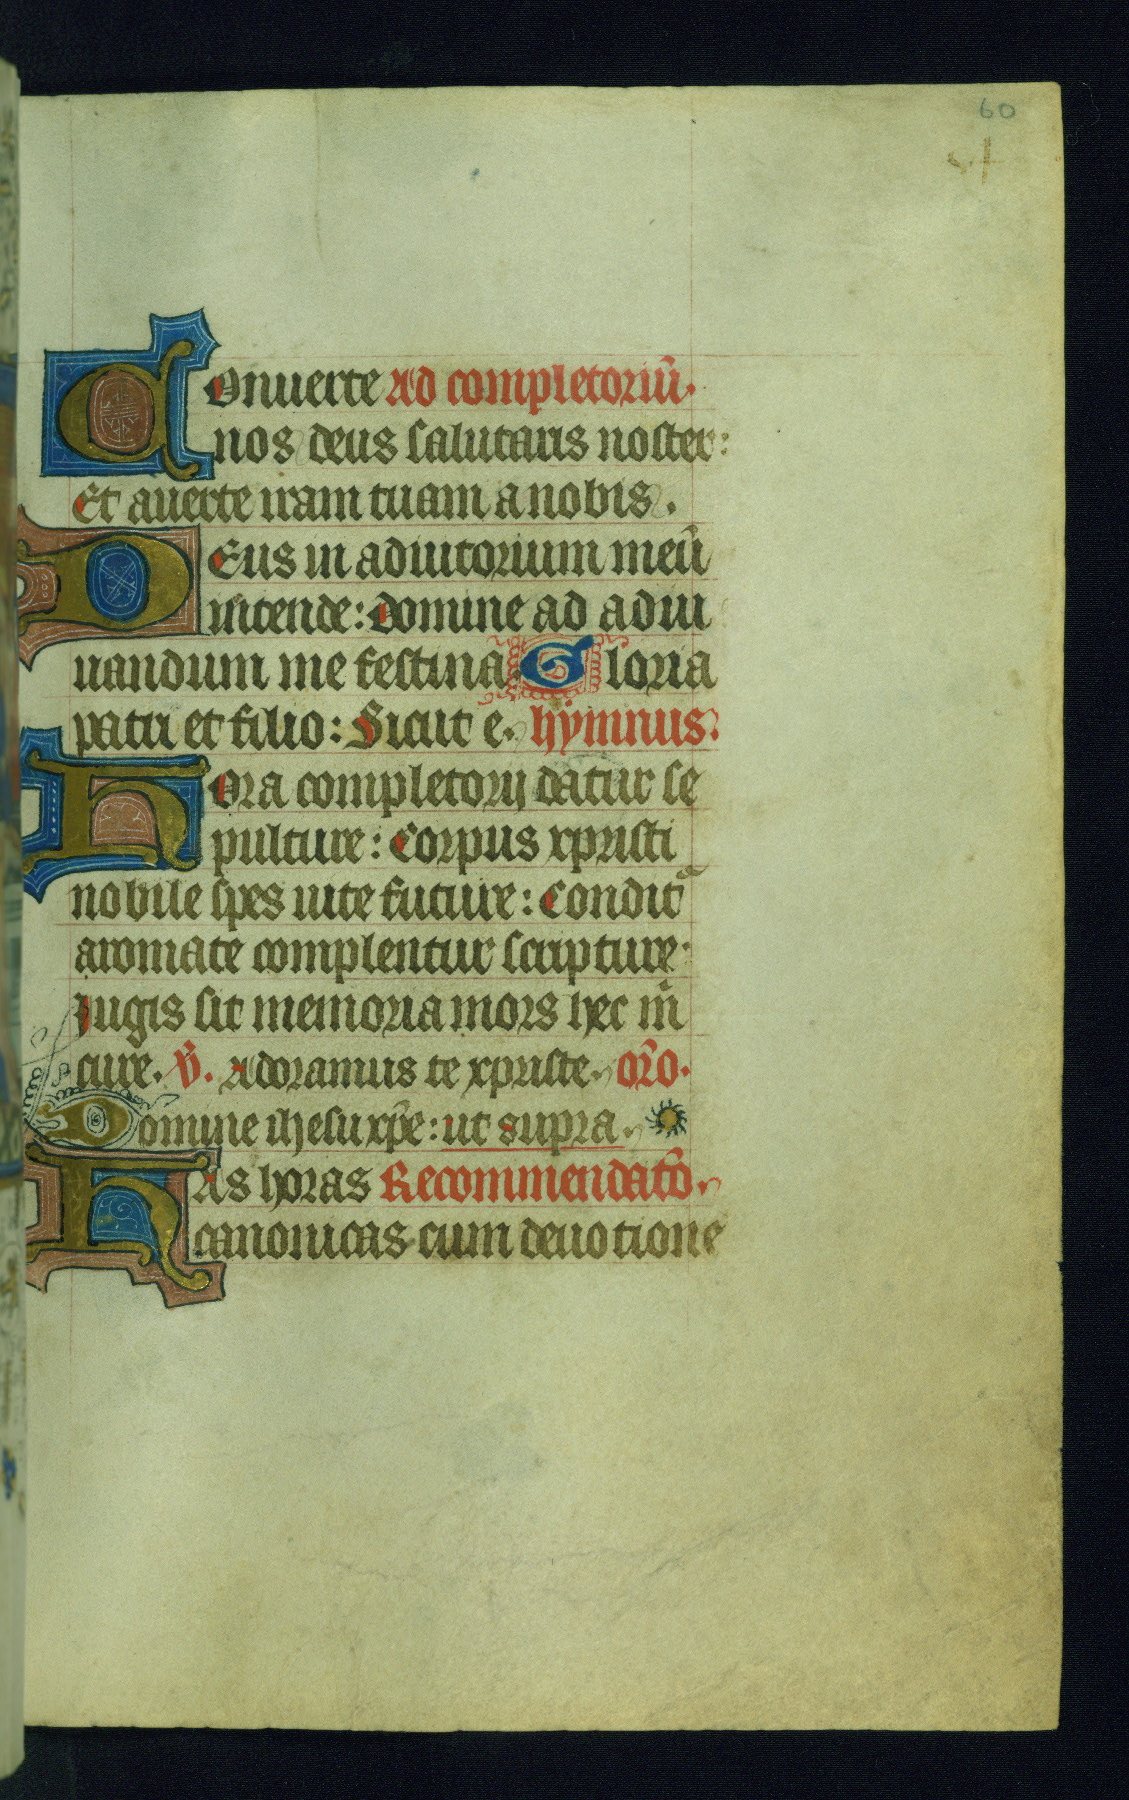 60
Conuerte Ad completoriū.
nos deus salutaris noster:
Et auerte iram tuam a nobis.
Deus in adiutorium meū
intende: domine ad adiu
uandum me festina Gloria
patri et filio: Sicut e. hymnus.
Hora completorij datur se
pulture: Corpus xpristi
nobile spes uite future: Condit᷑
aromate complentur scripture.
Iugis sit memoria mors hec m̄
cure. V̄. Adoramus te xpriste. or̄o.
Domine ihesu xp̄e: ut supra.
Has horas Recommendatō.
canonicas cum deuotione